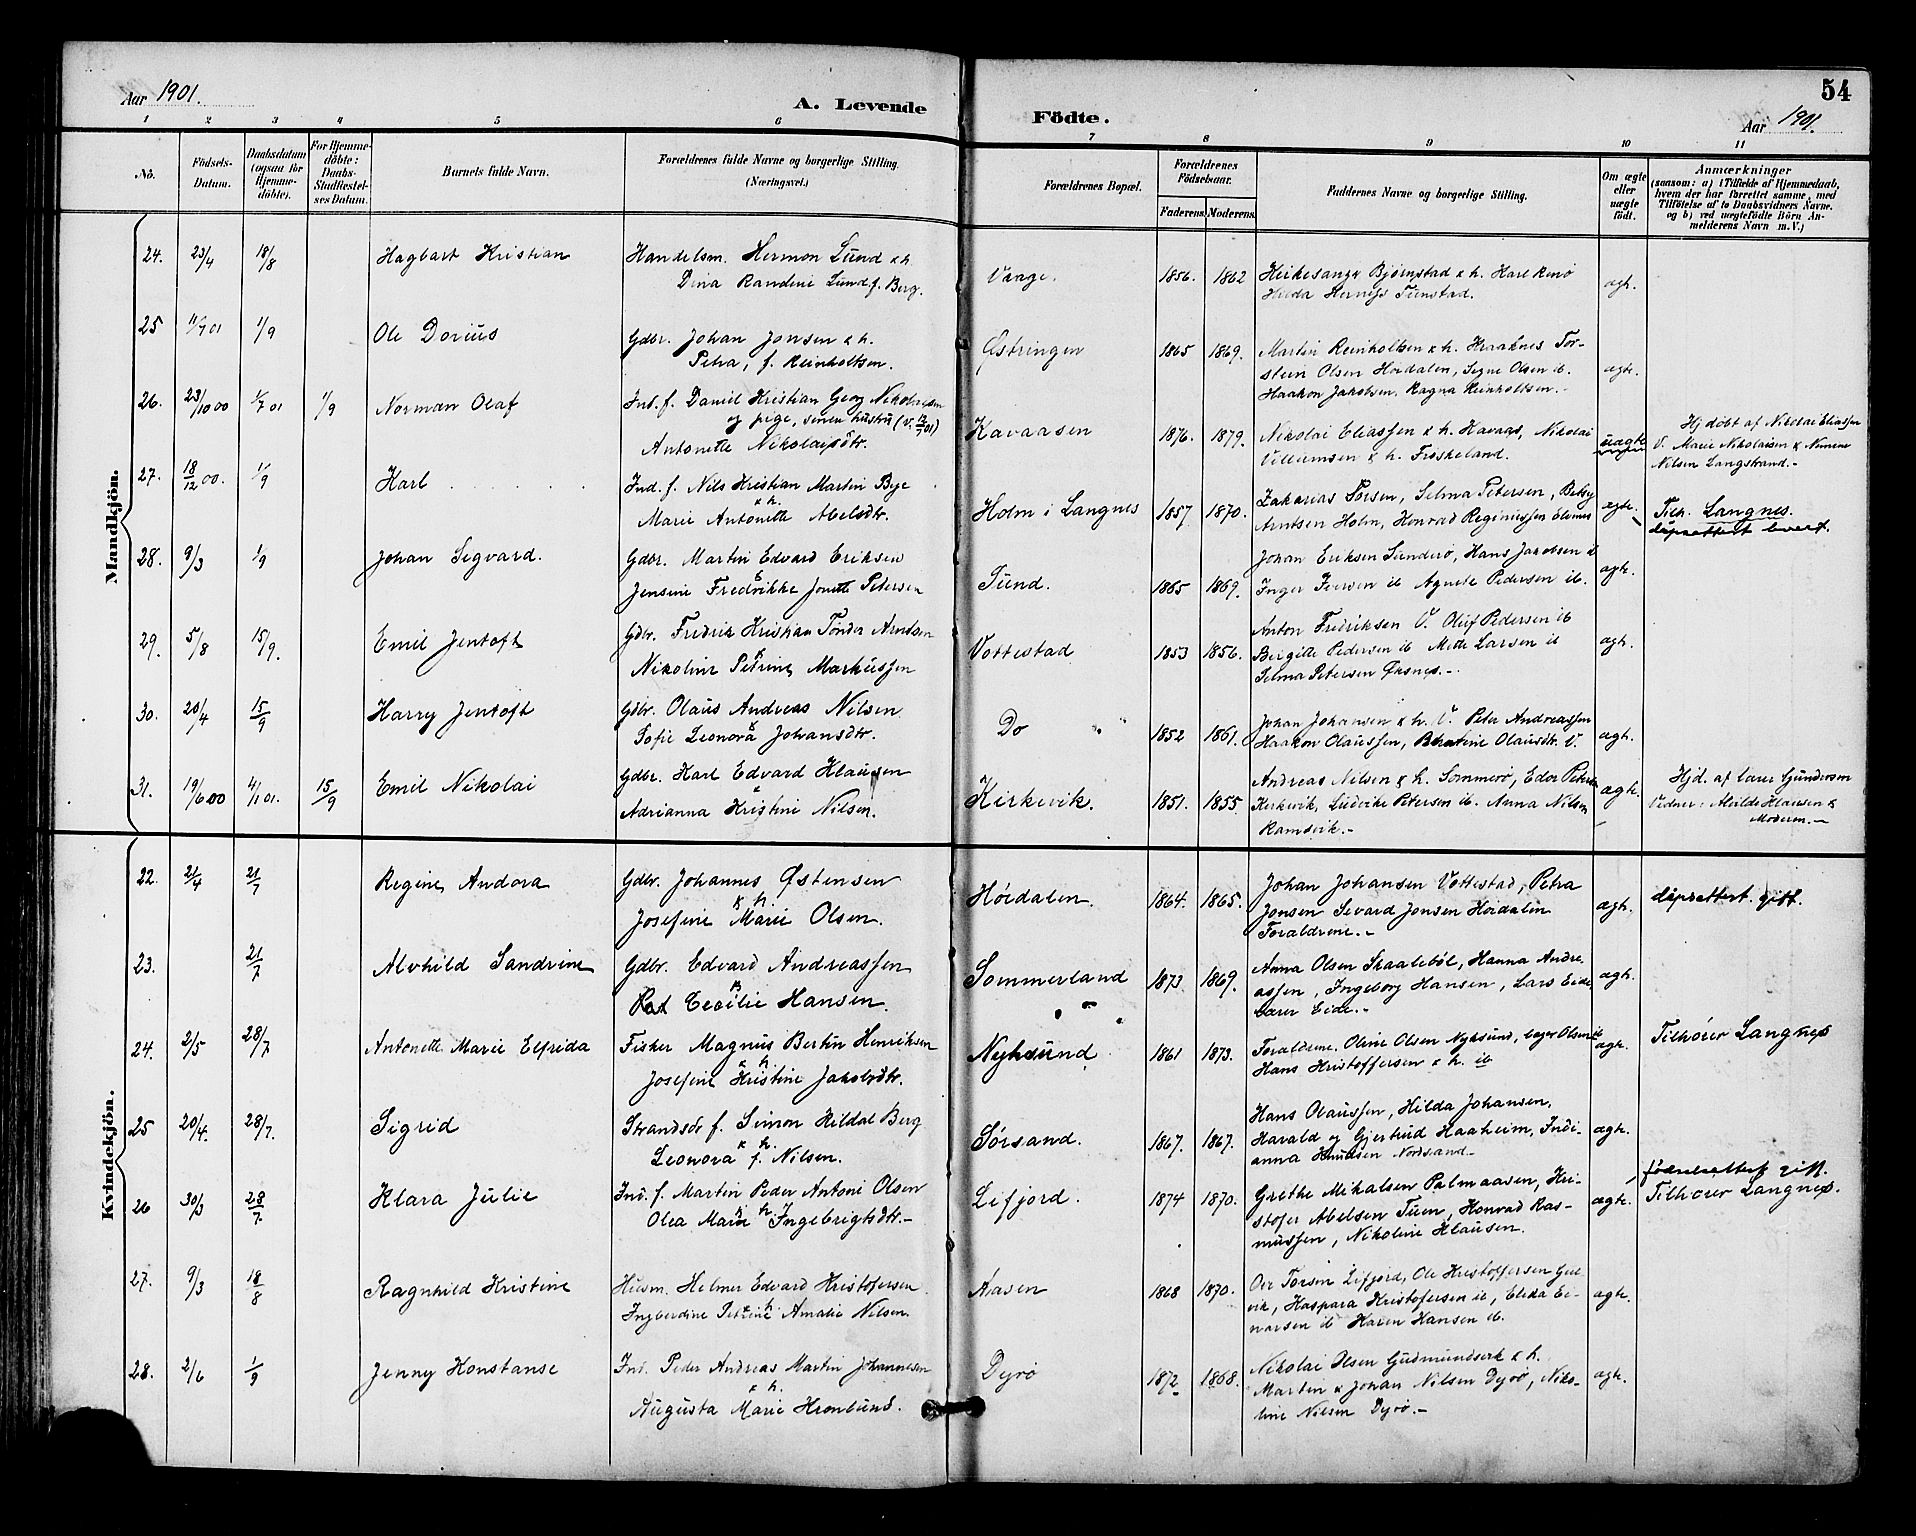 54
Aar 1901.
A. Levende
Födte.
Aar 1901.
1 2 3 4 5 6 7 8 9 10 11
No.
Födsels-Datum.
Daabsdatum (ogsaa for Hjemme-döbte).
For Hjemme-döbte: Daabs-Stadfæstel-ses Datum.
Barnets fulde Navn.
Forældrenes fulde Navne og borgerlige Stilling. (Næringsvei.)
Forældrenes Bopæl.
Forældrenes Födselsaar.
Faderens. Moderens.
Faddernes Navne og borgerlige Stilling.
Om ægte eller uægte födt.
Anmærkninger
(saasom: a) i Tilfælde af Hjemmedaab,
hvem der har forrettet samme, med
Tilföielse af to Daabsvidners Navne.
og b) ved uægtefödte Börn An-
melderens Navn m.V.)
Mandkjön.
24. 23/4 18/8 Hagbart Kristian
Handelsm. Hermon Lund & h.
Dina Randine Lund f. Berg.
Vaage. 1856. 1862
Kirkesanger Bjørnstad & h. Karl Renø
Hilda Tunstad.
ægt.
25 11/7 01 1/9 Ole Dorius
Gdbr. Johan Jonsen & h.
Petra, f. Reinholtsen.
Østringen 1865 1869.
Martin Reinholtsen & h. Kraaknes Tor-
stein Olsen Høidalen, Signe Olsen ib.
Haakon Jakobsen. Ragna Reinholtsen.-
ægt.
26. 23/10 00 1/7 01 1/9 Norman Olaf
Ind. f. Daniel Kristian Georg Nikolaisen
og pige, senere hustru (v. 12/7 01)
Antonette Nikolaisdtr.
Kavaasen 1876. 1879.
Nikolai Eliassen & h. Kavaas, Nikolai
Villumsen & h. Frøskeland.
uægte
Hjdöbt af Nikolai Eliassen
V. Marie Nikolaisen &
Nilsen Langstrand.-
27. 18/12 00. 1/9 Karl
Ind. f. Nils Kristian Martin Bye
& h.
Marie Antonette Abelsdtr.
Holm i Langnes 1857 1870.
Zakarias Torsen, Selma Petersen, Betsy
Arntsen Holm, Konrad Reginussen
ægte.
Tilh. Langnes.
28. 9/3 1/9 Johan Sigvard.
Gdbr. Martin Edvard Eriksen
&
Jensine Fredrikke Jonette Petersen
Sund. 1865 1869.
Johan Eriksen Sanderø, Hans Jakobsen ib
Inger Iversen ib Agnete Pedersen ib.
ægt.
29. 5/8 15/9. Emil Jentoft
Gdbr. Fredrik Kristian Tønder Arntsen
&
Nikoline Petrine Markussen
Vottestad 1853 1856.
Anton Fredriksen V. Oluf Pedersen ib
Bergitte Pedersen ib Mette Larsen ib
Selma Petersen Øksnes.-
ægt.
30. 20/4 15/9 Harry Jentoft
Gdbr. Olaus Andreas Nilsen
&
Sofie Leonora Johansdtr.
Do " 1852 1861.
Johan Johansen & h. V. Peter Andreassen
Haakon Olaussen, Olausdtr. V.
ægt.
31. 19/6 00 4/1 01. 15/9 Emil Nikolai
Gdbr. Karl Edvard Klausen
&
Adrianna Kristine Nilsen.
Kirkevik. 1851. 1855.
Andreas Nilsen & h. Sommerø, Edor Peters
Kirkvik, Ludvike Petersen ib. Anna Nilsen
Ramsvik.-
ægt.
Hjd. af lærer Gundersen
Vidner: Alvilde Klausen &
Moderen.-
Kvindekjön.
22. 21/4 21/7 Regine Andora
Gdbr. Johannes Østensen
& h.
Josefine Marie Olsen.
Høidalen. 1864. 1865.
Johan Johansen Vottestad, Petra
Jonsen Sevard Jonsen Høidalen
Forældrene.-
ægt.
23. 21/7 Alvhild Sandrine
Gdbr. Edvard Andreassen
&
Cecilie Hansen.
Sommerland 1873. 1869.
Anna Olsen Skaalebøl, Hanna Andre
assen, Ingeborg Hansen, Lars Eide
lærer Eide.-
ægt.
24. 2/5 28/7 Antonette Marie Elfrida
Fisker Magnus Bertin Henriksen
& h.
Josefine Kristine Jakobsdtr.
Nyksund. 1861 1873.
Forældrene. Oline Olsen Nyksund, Olsen ib
Hans Kristoffersen & h. ib
ægt.
Tilhører Langnes
25 20/4. 28/7. Sigrid
Strandsdr f. Simon Hildal Berg
& h.
Leonora f. Nilsen.
Sørsand. 1867. 1867.
Hans Olaussen, Hilda Johansen,
Harald og Gjertrud Haaheim, Indi-
anna Knudsen Nordsand.-
ægt.
26 30/3 28/7. Klara Julie
Ind. f. Martin Peder Antoni Olsen
& h.
Olea Marie Ingebrigtsdtr.-
Lifjord. 1874 1870.
Grethe Mikalsen Palmaasen, Kri-
stofer Abelsen Tuen, Konrad Ras-
mussen, Nikoline Klausen.
ægt.
Tilhører Langnes.
27. 9/3 18/8 Ragnhild Kristine
Husm. Helmer Edvard Kristofersen
& h.
Ingberdine Petrine Amalie Nilsen.
Aasen 1868 1870.
Torsen Lifjord, Ole Kristoffersen Gul-
vik, Kaspara Kristofersen ib, Elida Ei-
narsen ib Karen Hansen ib.
ægt.
28. 2/6 1/9 Jenny Konstanse
Ind. Peder Andreas Martin Johannesen
& h.
Augusta Marie Kronlund.
Dyrø 1872 1868.
Nikolai Olsen Gudmundserk & h.
Martin & Johan Nilsen Dyrø, Niko-
line Nilsen Dyrø.-
ægt.